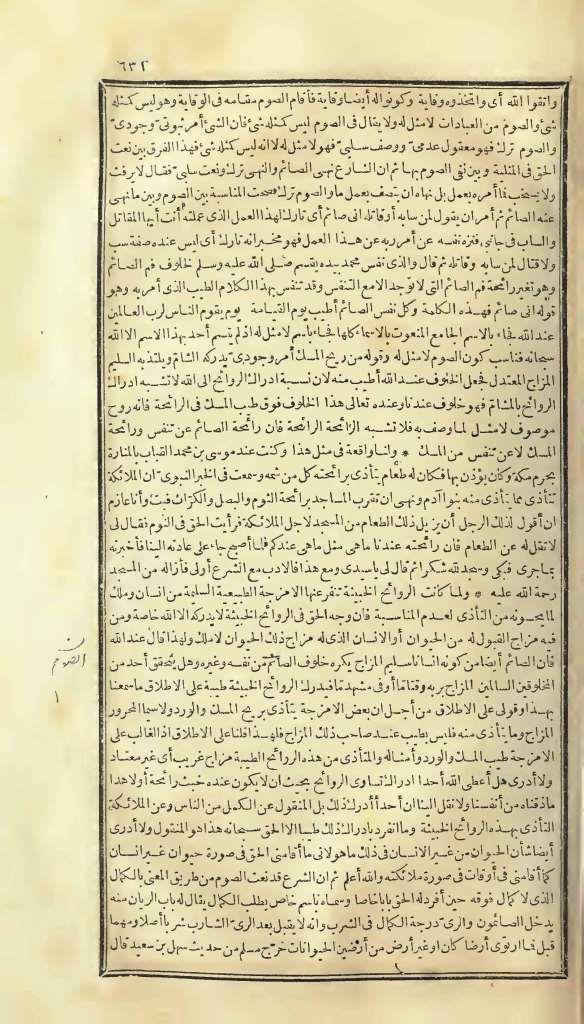 ٦٣٢
واتقوا الله أى واتخذوه وقاية وكونوا له أيضا وقاية فأقام الصوم مقامه فى الوقاية وهو ليس كمثله
شئ والصوم من العبادات لا مثل له ولا يقال فى الصوم ليس كمثله شئ فان الشئ أمر ثبوتى وجودى
والصوم ترك فهو معقول عدمى ووصف سلبى فهو لا مثل له لا انه ليس كمثله شئ فهذا الفرق بين نعت
الحق فى المثلية وبين نفى الصوم بها ثم ان الشارع نهى الصائم والنهى ترك ونعت سلبى فقال لا يرفث
ولا يسخب فما أمره بعمل بل نهاه ان يتصف بعمل ما والصوم ترك فصحت المناسبة بين الصوم وبين ما نهى
عنه الصائم ثم أمر ان يقول لمن سابه أو قاتله انى صائم أى تارك لهذا العمل الذى عملته أنت أيها المقاتل
والساب فى جانبى فنزه نفسه عن أمر ربه عن هذا العمل فهو مخبر انه تارك أى ليس عنده صفة سب
ولا قتال لمن سابه وقاتله ثم قال والذى نفس محمد بيده يقسم صلى الله عليه وسلم لخلوف فم الصائم
وهو تغير رائحة فم الصائم التى لا توجد الا مع التنفس وقد تنفس بهذا الكلام الطيب الذى أمر به وهو
قوله انى صائم فهذه الكلمة وكل نفس الصائم أطيب يوم القيامة يوم يقوم الناس لرب العالمين
عند الله فجاء بالاسم الجامع المنعوت بالاسماء كلها فجاء باسم لا مثل له اذ لم يتسم أحد بهذا الاسم الا الله
سبحانه فناسب كون الصوم لا مثل له وقوله من ريح المسك أمر وجودى يدركه الشام ويلتذ به السليم
المزاج المعتدل فجعل الخلوف عند الله أطيب منه لان نسبة ادراك الروائح الى الله لا تشبه ادراك
الروائح بالمشام فهو خلوف عندنا وعنده تعالى هذا الخلوف فوق طيب المسك فى الرائحة فانه روح
موصوف لا مثل لما وصف به فلا تشبه الرائحة الرائحة فان رائحة الصائم عن تنفس ورائحة
المسك لا عن تنفس من المسك * ولنا واقعة فى مثل هذا وكنت عند موسى بن محمد القباب بالمنارة
بحرم مكة وكان يؤذن بها فكان له طعام يتأذى برائحته كل من شمه وسمعت فى الخبر النبوى ان الملائكة
تتأذى مما يتأذى منه بنو آدم ونهى ان تقرب المساجد برائحة الثوم والبصل والكراث فبت وأنا عازم
ان أقول لذلك الرجل أن يزيل ذلك الطعام من المسجد لاجل الملائكة فرأيت الحق فى النوم فقال لى
لا تقل له عن الطعام فان رائحته عندنا ما هى مثل ما هى عندكم فلما أصبح جاء على عادته الينا فأخبرته
بما جرى فبكى وسجد لله شكرا ثم قال لى ياسيدى ومع هذا فالادب مع الشرع أولى فأزاله من المسجد
رحمة الله عليه * ولما كانت الروائح الخبيثة تنفر عنها الامزجة الطبيعية السليمة من انسان وملك
لما يجونه من التأذى لعدم المناسبة فان وجه الحق فى الروائح الخبيثة لا يدركه الا الله خاصة ومن
فيه مزاج القبول له من الحيوان أو الانسان الذى له مزاج ذلك الحيوان لا ملك ولهذا قال عند الله
فان الصائم أيضا من كونه انسانا سليم المزاج يكره خلوف الصائم من نفسه وغيره وهل يتحقق أحد من
المخلوقين السالمين المزاج بربه وقتا ما أو فى مشهد ما فيدرك الروائح الخبيثة طيبة على الاطلاق ما سمعنا
بهذا وقولى على الاطلاق من أجل ان بعض الامزجة يتأذى بريح المسك والورد ولا سيما المحرور
المزاج وما يتأذى منه فليس بطيب عند صاحب ذلك المزاج فلهذا قلنا على الاطلاق اذ الغالب على
الامزجة طيب المسك والورد وأمثاله والمتأذى من هذه الروائح الطيبة مزاج غريب أى غير معتاد
ولا أدرى هل أعطى الله أحدا ادراك تساوى الروائح بحيث ان لا يكون عنده خبث رائحة أولا هذا
ما ذقناه من أنفسنا ولا نقل الينا ان أحدا أدرك ذلك بل المنقول عن الكمل من الناس وعن الملائكة
التأذى بهذه الروائح الخبيثة وما انفرد بادراك ذلك طيبا الا الحق سبحانه هذا هو المنقول ولا أدرى
أيضا شأن الحيوان من غير الانسان فى ذلك ما هو لانى ما أقامنى الحق فى صورة حيوان غير انسان
كما أقامنى فى أوقات فى صورة ملائكته والله أعلم ثم ان الشرع قد نعت الصوم من طريق المعنى بالكمال
الذى لا كمال فوقه حين أفرد له الحق بابا خاصا وسماه باسم خاص يطلب الكمال يقال له باب الريان منه
يدخل الصائمون والرى درجة الكمال فى الشرب وانه لا يقبل بعد الرى الشارب شربا أصلا ومهما
قبل فما ارتوى أرضا كان أو غير أرض من أرضين الحيوانات خرج مسلم من حديث سهل بن سعيد قال
الصوم
١